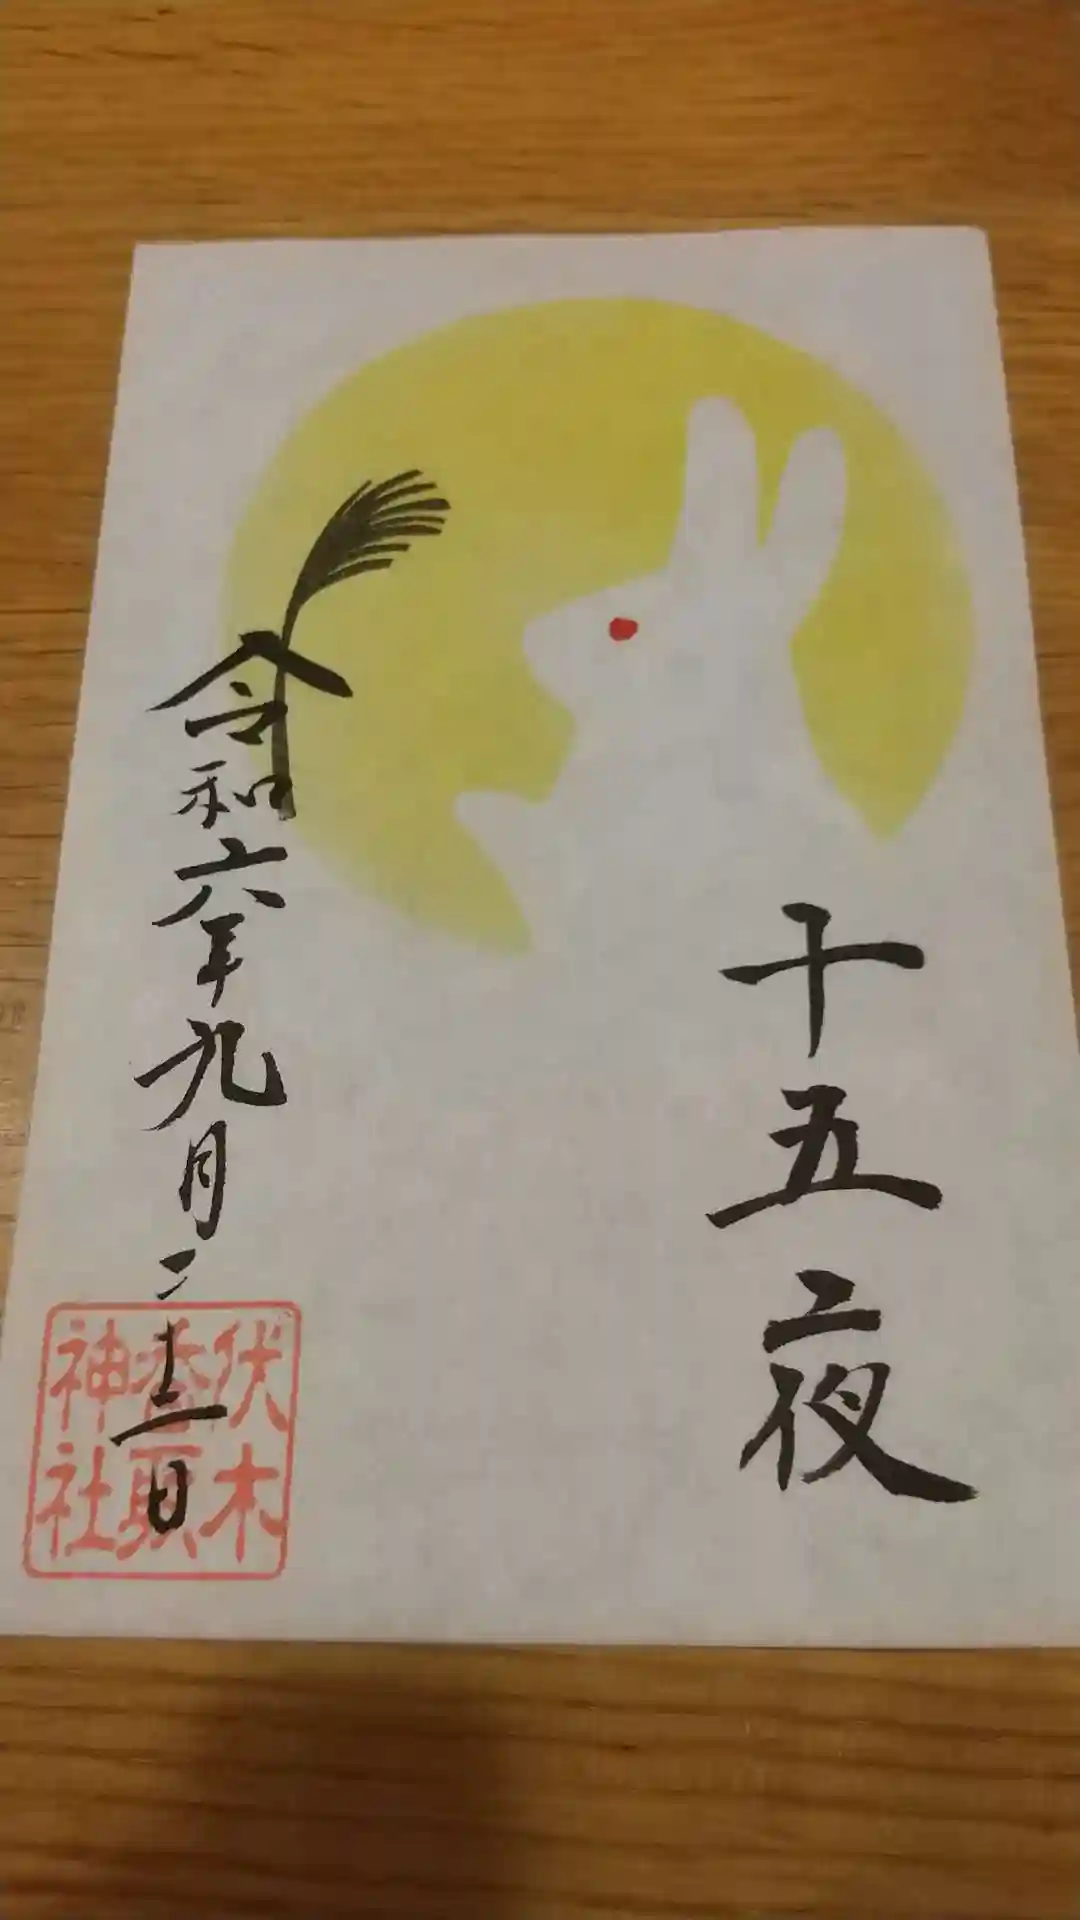 十五夜
令和六年九月二十二日
伏木
香取
神社